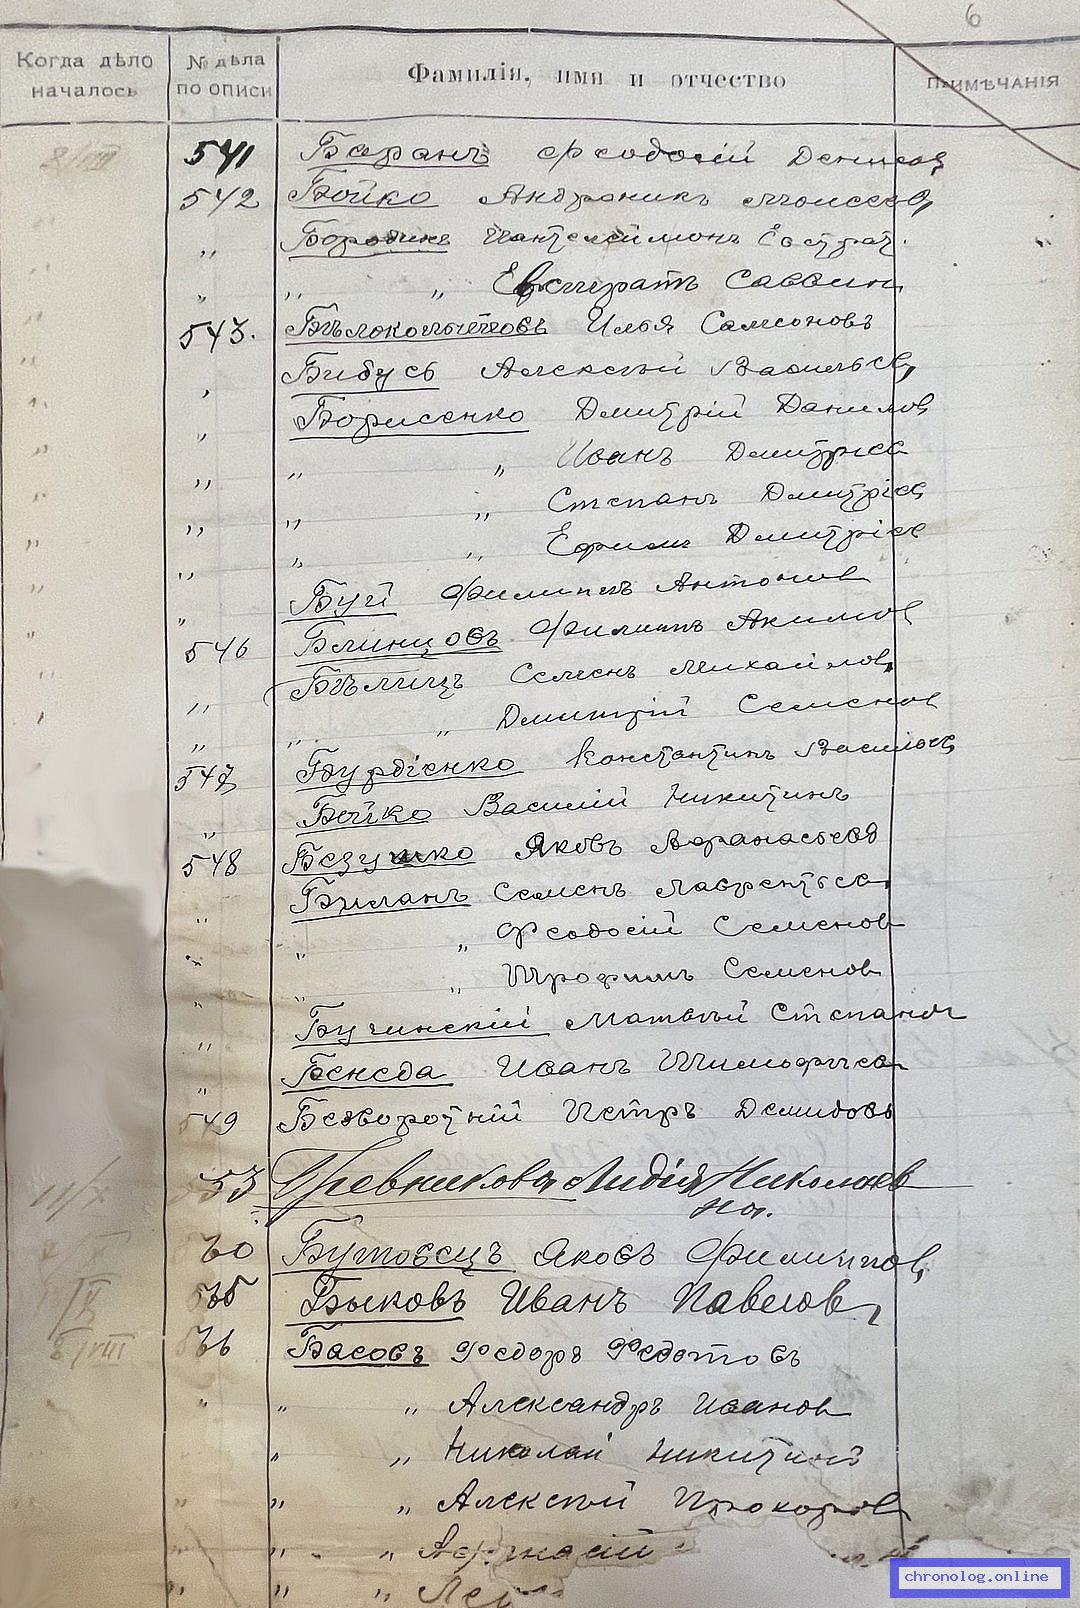 6
Когда дѣло началось № дѣла по описи Фамилія, имя и отчество Примѣчанія
8/VIII 541 Баранъ Феодосій Денисов
542 Бойко Андроникъ Моисеев
„ Бородинъ Пантелеймонъ Евстрат.
„ „ „ Евстратъ Саввин
543. Бѣлокопытовъ Илья Самсоновъ
„ Бибусь Алексѣй Васильев
„ Борисенко Дмитрій Данилов
„ „ „ Иванъ Дмитриев
„ „ „ Степанъ Дмитріев
„ „ „ Ефимъ Дмитріев
„ Буй Филиппъ Антонов
546 Блинцовъ Филиппъ Акимов
„ Бѣлицъ Семенъ Михайлов
„ „ „ Дмитрій Семенов
547 Константинъ Василіев
„ Бойко Василій Никитинъ
548 Безушко Яковъ Афанасьев
„ Биланъ Семенъ Лаврентьев
„ „ „ Феодосій Семенов
„ „ „ Трофимъ Семенов
„ Бучинскій Матвѣй Степанов
„ Бенеда Иванъ Тимофѣев
549 Безворотній Петръ Демидовъ
11/X 53 Гревникова Лидія Николаев
на.
60 Бутовецъ Яковъ Филиппов
565 Быковъ Иванъ Павелов
8/VIII 566 Басовъ Федоръ Федотовъ
„ „ „ Александръ Иванов
„ „ Николай Никитин
„ „ „ Алексѣй Прохоров
„ „ „ Афанасій
„ „ „
chronolog.online